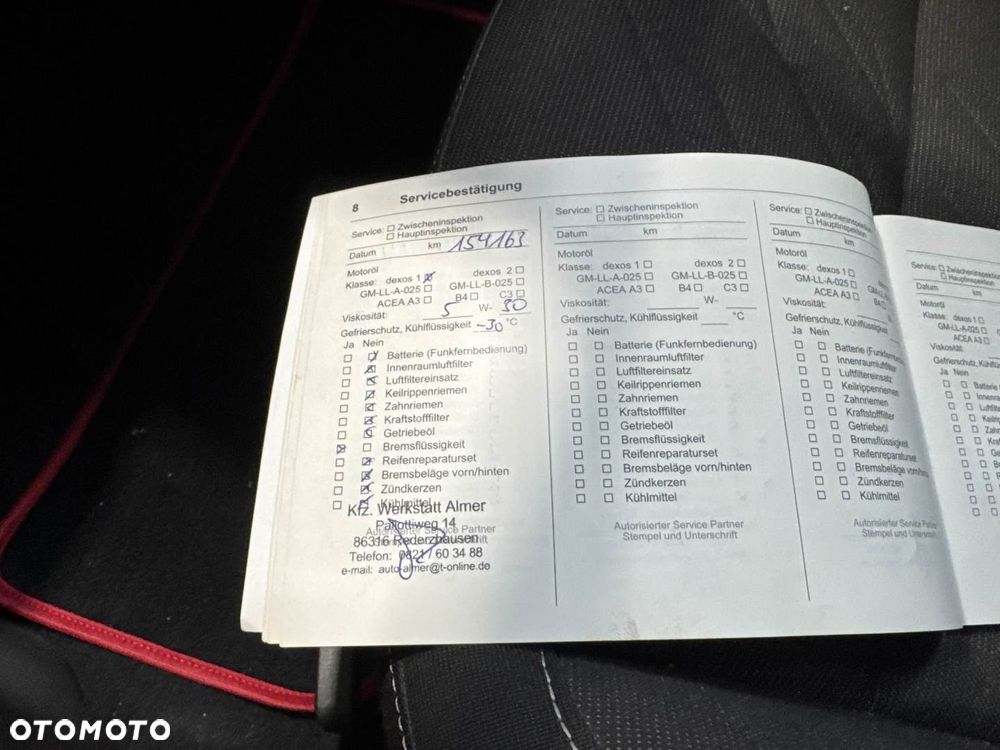 8 Servicebestätigung
Service: ☐ Zwischeninspektion
☐ Hauptinspektion
Datum km 154163
Motoröl
Klasse: dexos 1 ☒ dexos 2 ☐
GM-LL-A-025 ☐ GM-LL-B-025 ☐
ACEA A3 ☐ B4 ☐ C3 ☐
Viskosität: 5 W- 30
Gefrierschutz, Kühlflüssigkeit -30 °C
Ja Nein
☐ ☒ Batterie (Funkfernbedienung)
☐ ☒ Innenraumluftfilter
☐ ☒ Luftfiltereinsatz
☐ ☒ Keilrippenriemen
☐ ☒ Zahnriemen
☐ ☒ Kraftstofffilter
☐ ☒ Getriebeöl
☒ ☐ Bremsflüssigkeit
☐ ☒ Reifenreparaturset
☐ ☒ Bremsbeläge vorn/hinten
☐ ☒ Zündkerzen
☐ ☒ Kühlmittel
Kfz. Werkstatt Almer
Pallottiweg 14
86316 Rederzhausen
Telefon: 0821 / 60 34 88
e-mail: auto-almer@t-online.de
Service: ☐ Zwischeninspektion
☐ Hauptinspektion
Datum km
Motoröl
Klasse: dexos 1 ☐ dexos 2 ☐
GM-LL-A-025 ☐ GM-LL-B-025 ☐
ACEA A3 ☐ B4 ☐ C3 ☐
Viskosität: W-
Gefrierschutz, Kühlflüssigkeit °C
Ja Nein
☐ ☐ Batterie (Funkfernbedienung)
☐ ☐ Innenraumluftfilter
☐ ☐ Luftfiltereinsatz
☐ ☐ Keilrippenriemen
☐ ☐ Zahnriemen
☐ ☐ Kraftstofffilter
☐ ☐ Getriebeöl
☐ ☐ Bremsflüssigkeit
☐ ☐ Reifenreparaturset
☐ ☐ Bremsbeläge vorn/hinten
☐ ☐ Zündkerzen
☐ ☐ Kühlmittel
Autorisierter Service Partner
Stempel und Unterschrift
Service: ☐ Zwischeninspektion
☐ Hauptinspektion
Datum km
Motoröl
Klasse: dexos 1 ☐
GM-LL-A-025 ☐
ACEA A3 ☐ B4
Viskosität:
Gefrierschutz, Kühlflüssigkeit
Ja Nein
☐ ☐ Batterie (Funkfern
☐ ☐ Innenraumluftfilter
☐ ☐ Luftfiltereinsatz
☐ ☐ Keilrippenriemen
☐ ☐ Zahnriemen
☐ ☐ Kraftstofffilter
☐ ☐ Getriebeöl
☐ ☐ Bremsflüssigkeit
☐ ☐ Reifenreparaturset
☐ ☐ Bremsbeläge vorn/hinten
☐ ☐ Zündkerzen
☐ ☐ Kühlmittel
Autorisierter Service Partner
Stempel und Unterschrift
Service: ☐ Zwischeninspektion
☐ Hauptinspektion
Datum km
Motoröl
Klasse: dexos 1 ☐
GM-LL-A-025 ☐
ACEA A3 ☐
Viskosität:
Gefrierschutz,
Ja Nein
☐ ☐ Batterie
OTOMOTO